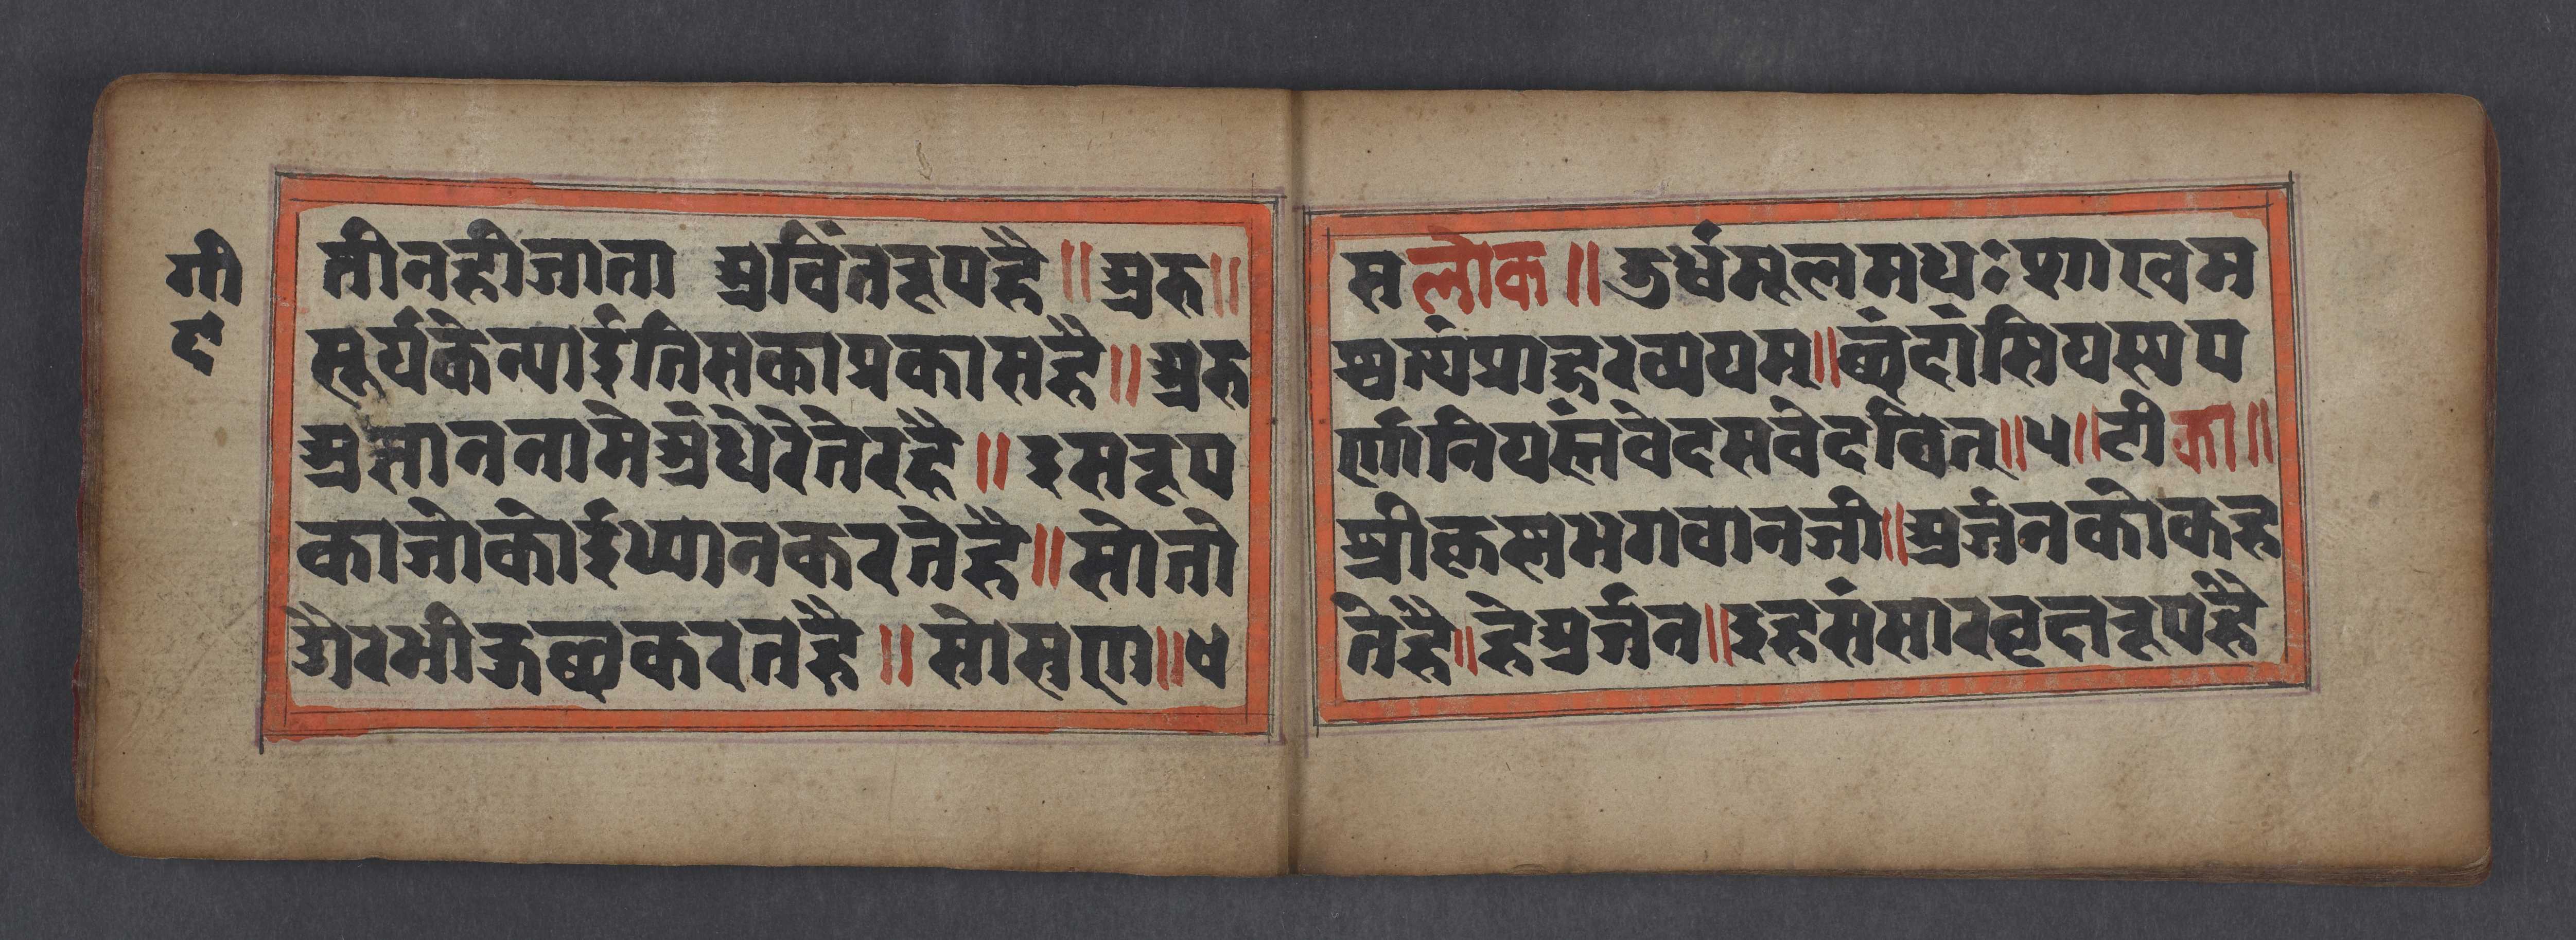 गी
९
तीनहीजाता अचिंतरूपहै॥ अरु॥
सूर्यकेन्याईतिसकाप्रकासहै॥ अरु
अज्ञाननामेअंधेरेतेरहै॥ इसरूप
काजोकोईध्यानकरतेहै॥ सोतो
औरभीकछुकरतहै॥ सोसुण॥४
सलोक॥ उर्धंमूलमधःशाखम
श्वत्थंप्राहुरव्ययम्॥छंदांसियस्यप
र्णानियस्तंवेदसवेदवित्॥५॥टीका॥
श्रीकृष्नभगवानजी॥अर्जनकोकह
तेहै॥हेअर्जन॥इहसंसारवृक्षरूपहै